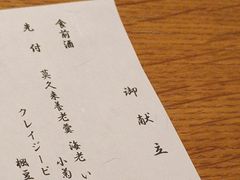 御献立
食前酒
先付
莫久来養老羹 海老 い
小菊
クレイジーピ
楓豆